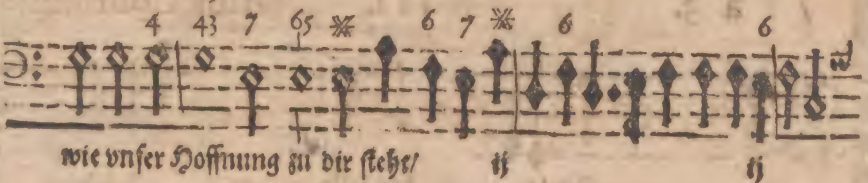 4 43 7 65 6 7 6 6
wie vnser Hoffnung zu dir steht/ ij ij